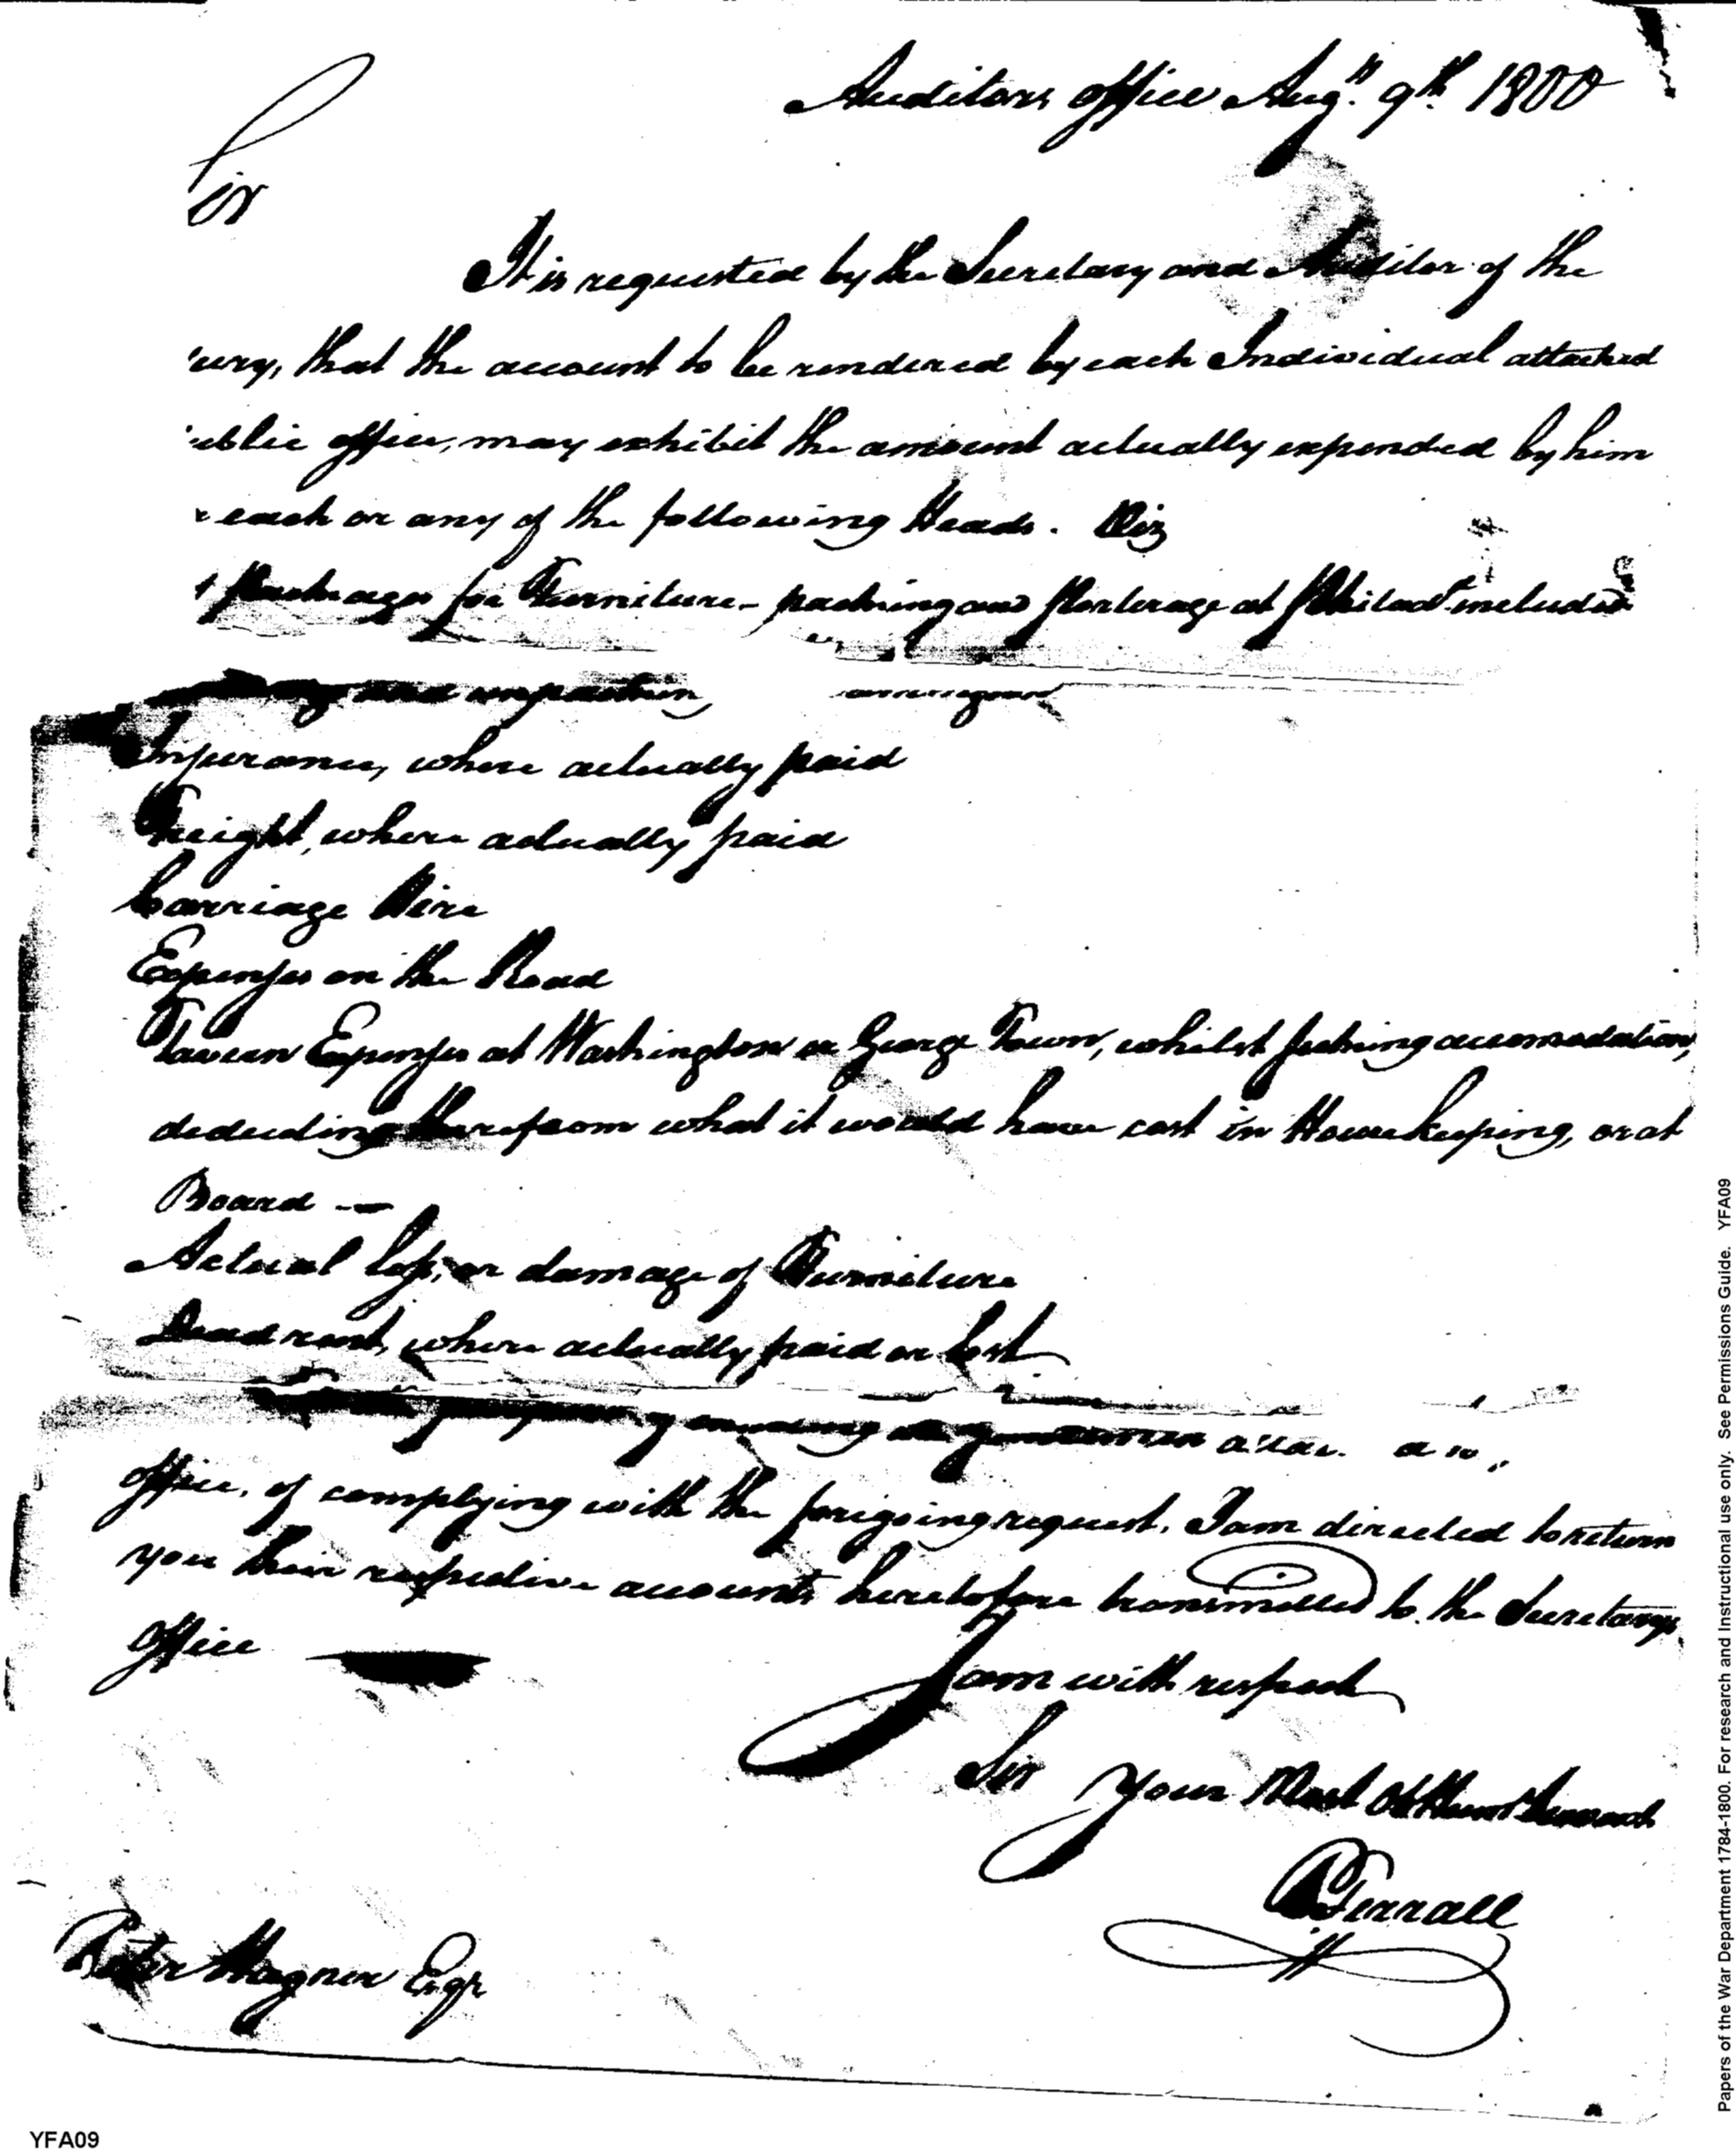 Auditors office Aug.t 9th 1800
Sir
It is requested by the Secretary and Auditor of the
ury, that the account to be rendered by each Individual attached
ublic office, may exhibit the amount actually expended by him
each or any of the following Heads. Viz
Packages for Furniture - packing and Porterage at Philad.a included
and unpacking
Insurance, where actually paid
Freight, where actually paid
Carriage Hire
Expenses on the Road
Tavern Expenses at Washington or George Town, whilst seeking accomodation,
deducting therefrom what it would have cost in Housekeeping, or at
Board —
Actual loss, or damage of Furniture
Dead rent, where actually paid or lost
purpose of
office, of complying with the foregoing request, I am directed to return
you their respective accounts heretofore transmitted to the Secretarys
office
I am with respect
Sir your Most Ob Hum Servant
Ferrall
Peter Hagner Esqr
YFA09
Papers of the War Department 1784-1800. For research and Instructional use only. See Permissions Guide. YFA09